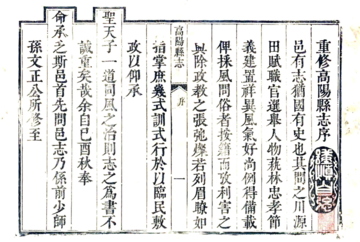 重修高陽縣志序
邑有志猶國有史也其間之川源
田賦職官選舉人物藝林忠孝節
義建置祥異風氣好尚例得備載
俾採風問俗者按籍而攷利害之
興除政教之張弛燦若列眉瞭如
高陽縣志
序
一
指掌庶幾式訓式行於以臨民敷
政以仰承
聖天子一道同風之治則志之為書不
誠重矣哉余自己酉秋奉
命承乏斯邑首先問邑志乃係前少師
孫文正公所修至